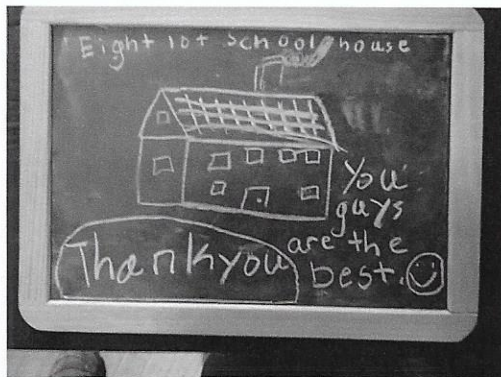 Eight lot school house
You
guys
are the
best.
Thank you